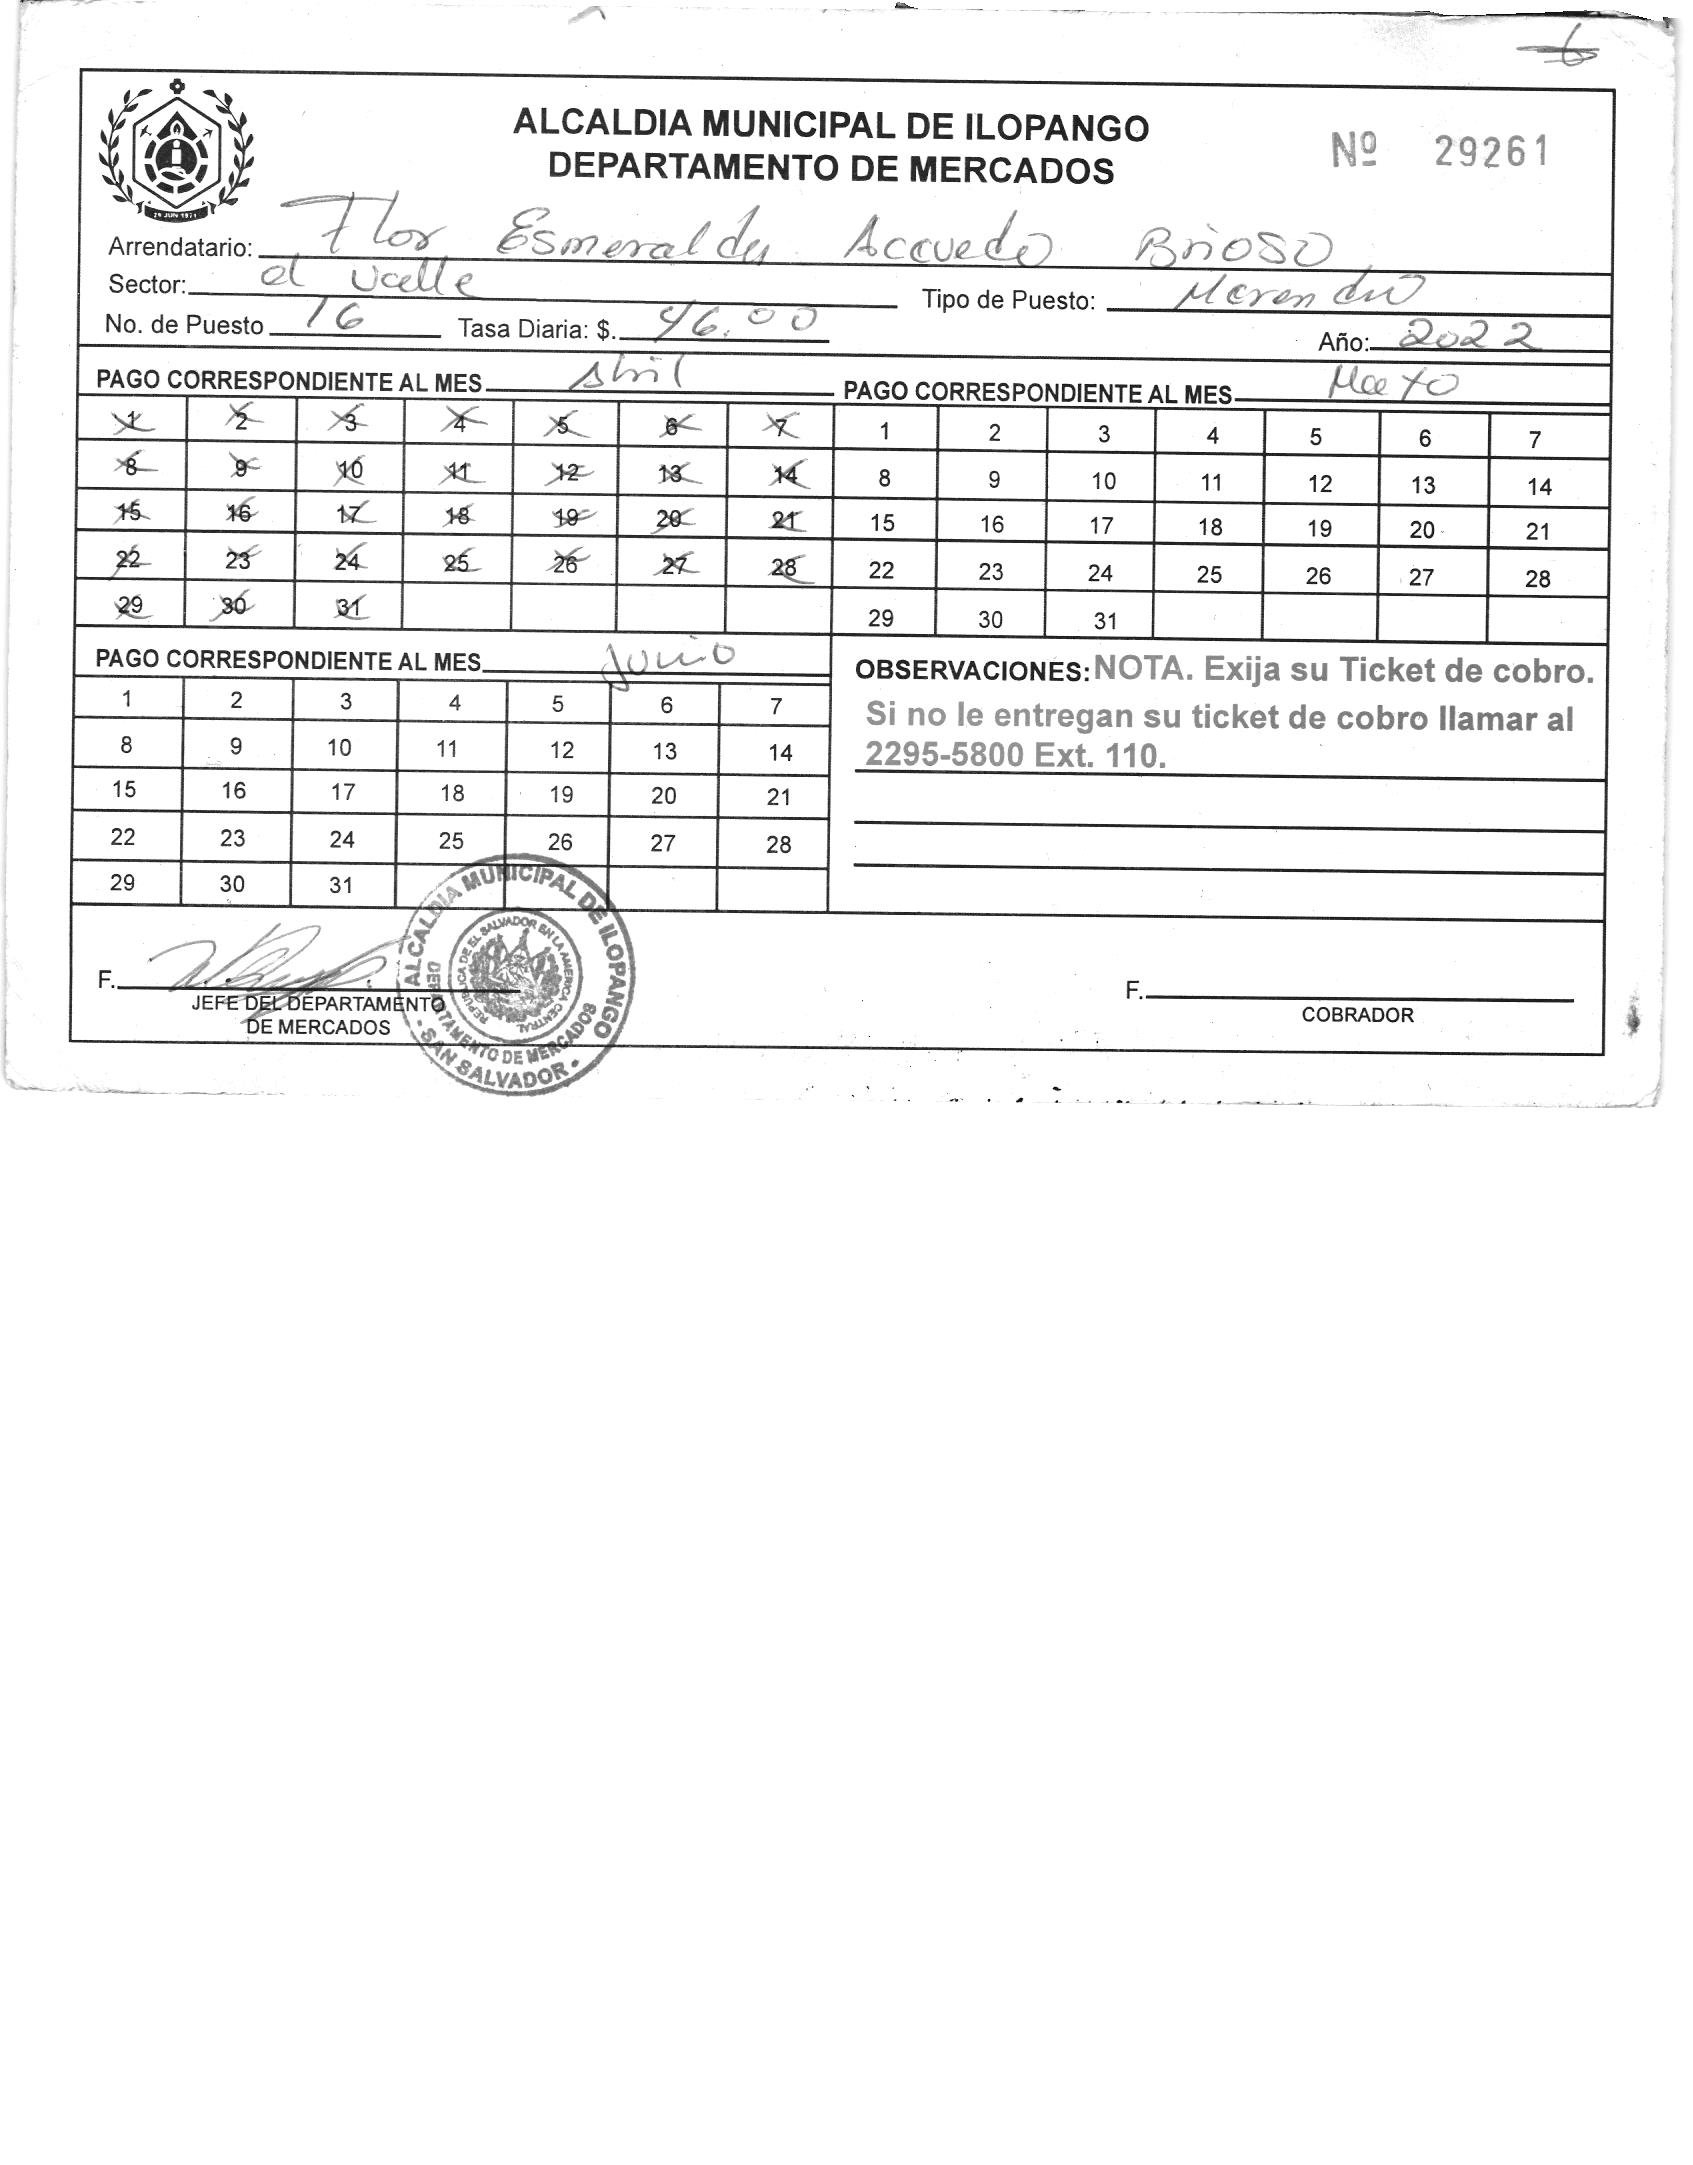 6
ALCALDIA MUNICIPAL DE ILOPANGO
DEPARTAMENTO DE MERCADOS
Nº 29261
29 JUN 1971
Arrendatario: Flor Esmeralda Acevedo Brioso
Sector: el valle Tipo de Puesto:
No. de Puesto 16 Tasa Diaria: $. 46.00 Año: 2022
PAGO CORRESPONDIENTE AL MES Abril
1 2 3 4 5 6 7
8 9 10 11 12 13 14
15 16 17 18 19 20 21
22 23 24 25 26 27 28
29 30 31
PAGO CORRESPONDIENTE AL MES Mayo
1 2 3 4 5 6 7
8 9 10 11 12 13 14
15 16 17 18 19 20 21
22 23 24 25 26 27 28
29 30 31
PAGO CORRESPONDIENTE AL MES Junio
1 2 3 4 5 6 7
8 9 10 11 12 13 14
15 16 17 18 19 20 21
22 23 24 25 26 27 28
29 30 31
OBSERVACIONES: NOTA. Exija su Ticket de cobro.
Si no le entregan su ticket de cobro llamar al
2295-5800 Ext. 110.
F.
JEFE DEL DEPARTAMENTO
DE MERCADOS
ALCALDIA MUNICIPAL DE ILOPANGO
REPUBLICA DE EL SALVADOR EN LA AMERICA CENTRAL
DEPARTAMENTO DE MERCADOS
- SAN SALVADOR -
F.
COBRADOR